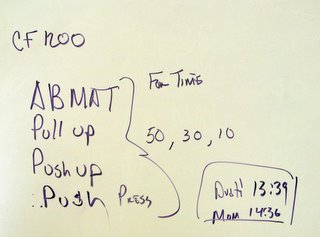 CF 1200
For Time
ABMAT
Pull up
50, 30, 10
Push up
Push Press
Dusti 13:39
Mom 14:36